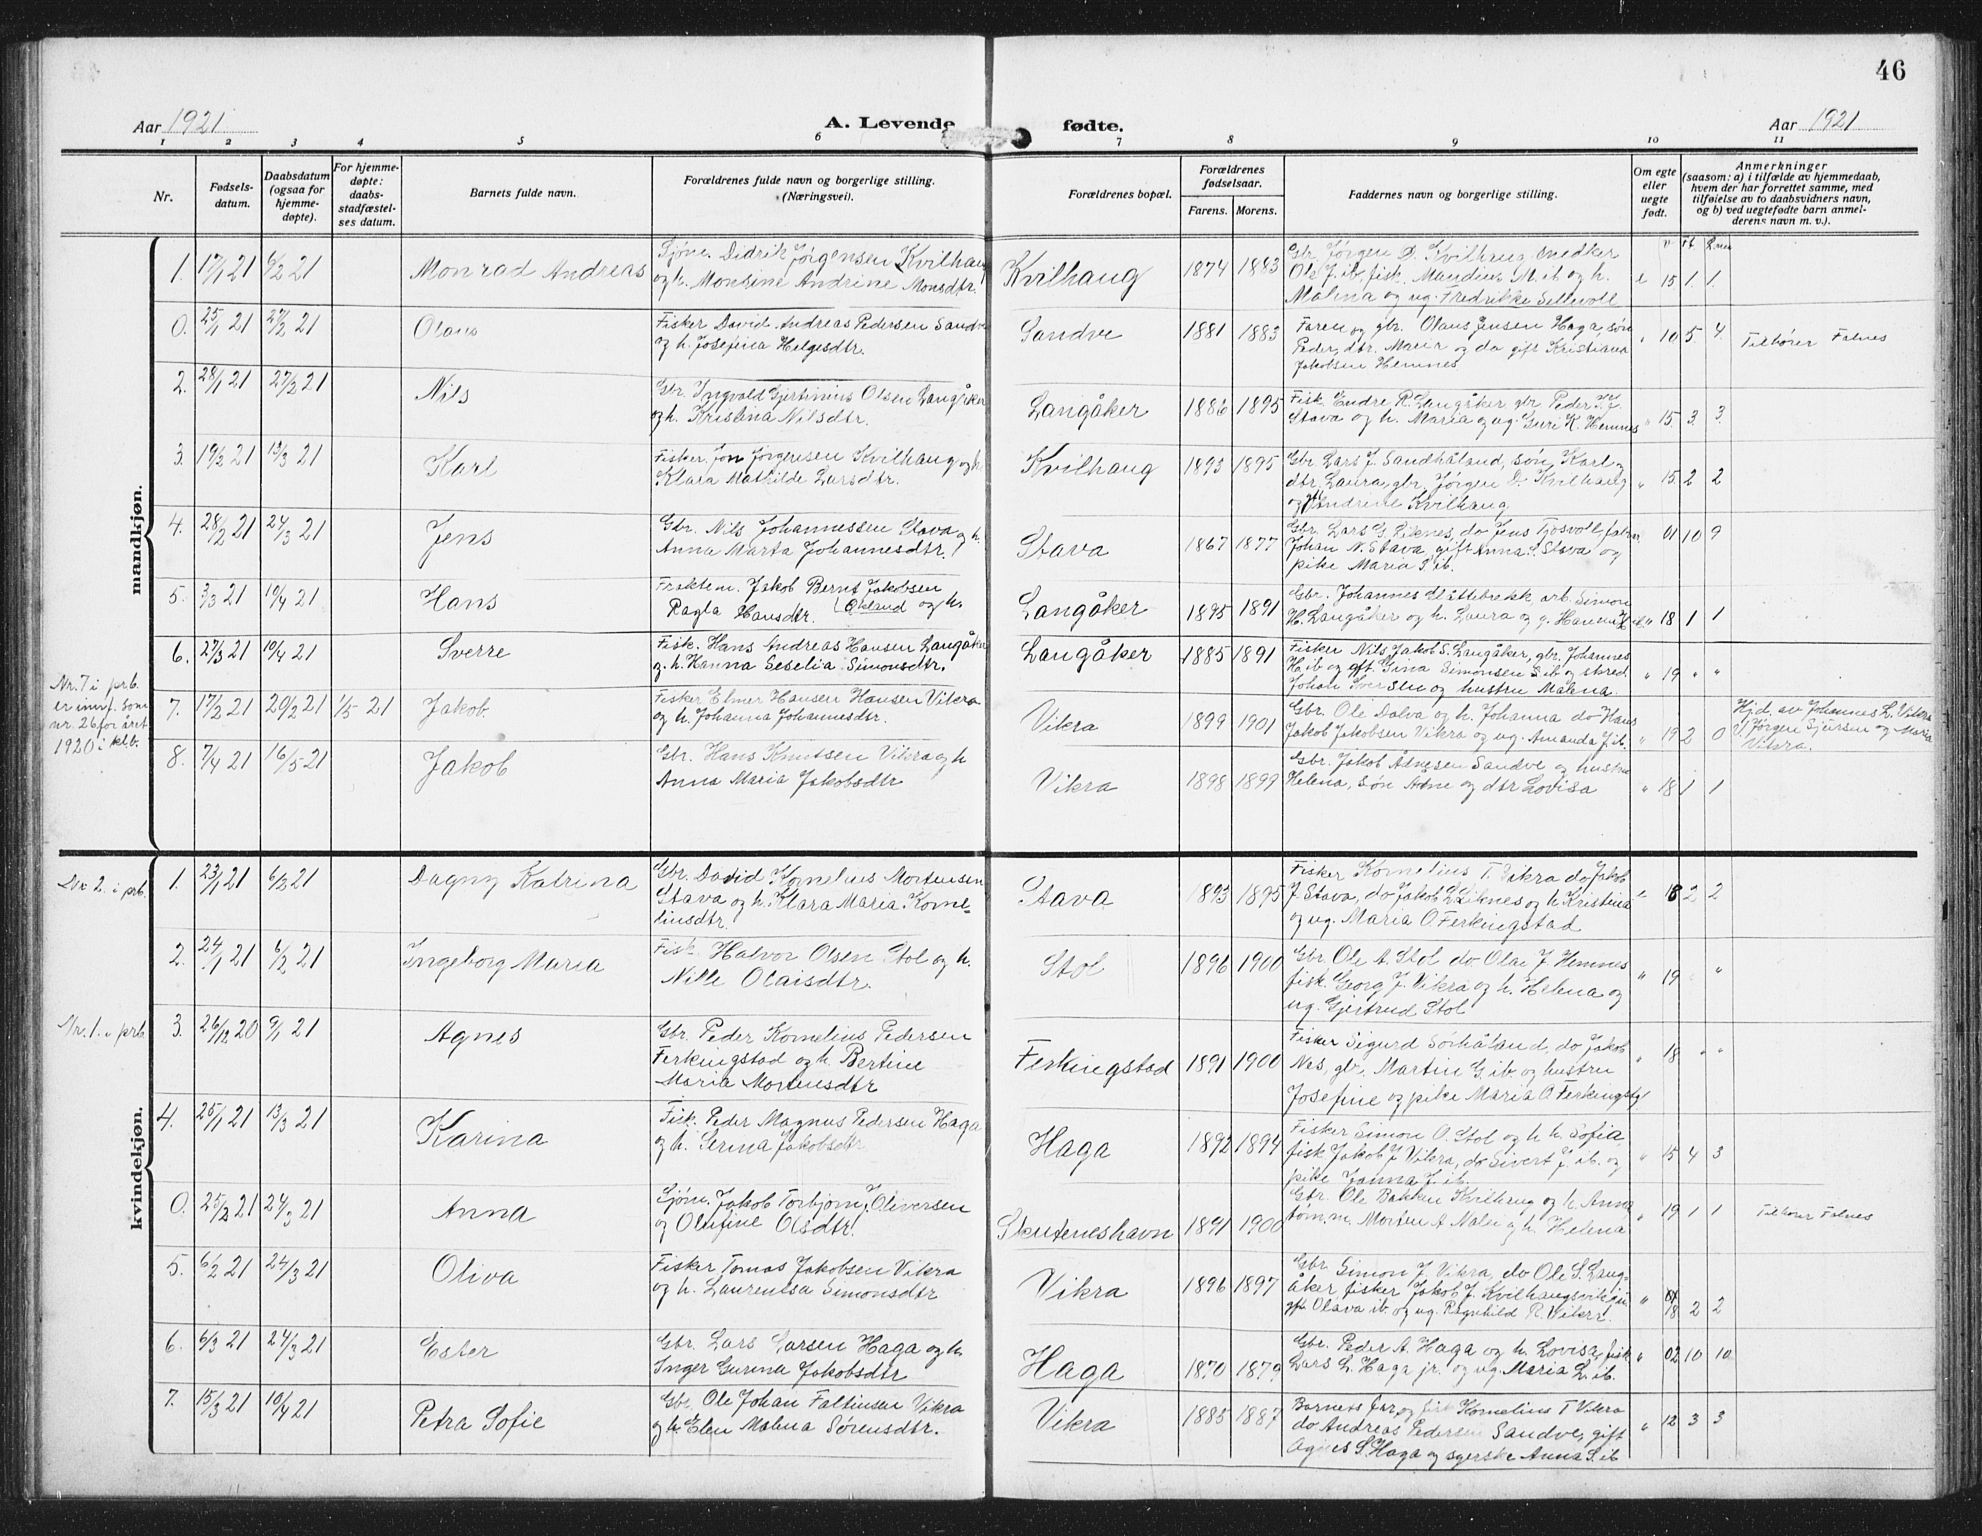 46
Aar 1921 A. Levende fødte. Aar 1921
1 2 3 4 5 6 7 8 9 10 11
Nr.
Fødsels-
datum.
Daabsdatum
(ogsaa for
hjemme-
døpte).
For hjemme-
døpte:
daabs-
stadfæstel-
ses datum.
Barnets fulde navn.
Forældrenes fulde navn og borgerlige stilling.
(Næringsvei).
Forældrenes bopæl.
Forældrenes
fødselsaar.
Farens. Morens.
Faddernes navn og borgerlige stilling.
Om egte
eller
uegte
født.
Anmerkninger
(saasom: a) i tilfælde av hjemmedaab,
hvem der har forrettet samme, med
tilføielse av to daabsvidners navn,
og b) ved uegtefødte barn anmel-
derens navn m. v.).
mandkjøn.
1. 17/1 21 6/2 21 Monrad Andreas
Sjøm. Didrik Jørgensen Kvilhaug
og h. Monsine Andrine Monsdtr.
Kvilhaug 1874 1883
Gbr. Jørgen D. Kvilhaug, snedker
Ole J. ib, fisk. Mandius M. ib og h.
Malina og ug. Fredrikke Sellevoll
15 1. 1.
0. 25/1 21 27/2 21 Olaus
Fisker David Andreas Pedersen Sandve
og h. Josefina Helgesdtr.
Sandve 1881 1883
Faren og gbr. Olaus Jensen Haga, søn
Peder, dtr. Maria og do gift Kristiana
Jakobsen Hemnes
" 10 5. 4. Tilhører Falnes
2. 28/1 21 27/2 21 Nils
Gbr. Ingvald Gjertinius Olsen Langåker
og h. Kristina Nilsdtr.
Langåker 1886 1895
Fisk. Endre R. Langåker, gbr. Peder
Stava og h. Maria og ug. Guri K. Hemnes
" 15 3. 3.
3. 19/2 21 13/3 21 Karl
Fisker Jon Jørgensen Kvilhaug og h.
Klara Mathilde Larsdtr.
Kvilhaug 1893 1895
Gbr. Lars J. Sandhåland, søn Karl og
dtr. Laura, gbr. Jørgen D. Kvilhaug
og gft Andrine Kvilhaug
" 15 2 2
4. 28/2 21 24/3 21 Jens
Gbr. Nils Johannessen Stava og h.
Anna Marta Johannesdtr.
Stava 1867 1877
Gbr. Lars G. Liknes, do Jens Tjosvoll,
Johan N. Stava, gift Anna S. Stava og
pike Maria S. ib.
01 10 9
5. 3/3 21 10/4 21 Hans
Fraktem. Jakob Bernt Jakobsen
Ragla Hansdtr. (Økland og h.
Langåker 1895 1891
Gbr. Johannes Slåttebrekk, arb. Simon
H. Langåker og h. Laura og g. Hanna
" 18 1 1
6. 27/3 21 10/4 21 Sverre
Fisk. Hans Andreas Hansen Langåker
og h. Hanna Seselia Simonsdtr.
Langåker 1885 1891
Fisker Nils Jakob S. Langåker, gbr. Johannes
H. ib og gft. Gina Simonsen S. ib og skred.
Johan Iversen og hustru Malena
" 19 " "
Nr. 7 i prb.
er innf. som
nr. 26 for året
1920 i klb.
7. 17/2 21 20/2 21 1/5 21 Jakob
Fisker Elmer Hansen Hansen Vikra
og h. Johanna Johannesdtr.
Vikra 1899 1901
Gbr. Ole Dalva og h. Johanna do Hans
Jakob Jakobsen Vikra og ug. Amanda J. ib.
" 19 2 0
Hjd. av Johannes L. Vikra
V. Jørgen Sjursen og Maria
Vikra.
8. 7/4 21 16/5 21 Jakob
Gbr. Hans Knutsen Vikra og h
Anna Maria Jakobsdtr
Vikra 1898 1899
Gbr. Jakob Adnesen Sandve og hustru
Helena, søn Adne og dtr Lovisa
" 18 1 1
kvindekjøn.
Nr 2. i prb. 1. 23/1 21 6/2 21 Dagny Katrina
Gbr. David Kornelius Mortensen
Stava og h. Klara Maria Korne-
liusdtr.
Stava 1893 1895
Fisker Kornelius T. Vikra do Jakob
J. Stava, do Jakob L. Liknes og h. Kristina
og ug. Maria O Ferkingstad
" 18 2 2
2. 24/1 21 6/2 21 Ingeborg Maria
Fisk. Halvor Olsen Stol og h.
Nille Olaisdtr.
Stol 1896 1900
Gbr. Ole A. Stol do Olai J. Hemnes
fisk. Georg J. Vikra og h. Helena og
ug. Gjertrud Stol
" 19 " "
Nr. 1. i prb. 3. 26/12 20 9/1 21 Agnes
Gbr. Peder Kornelius Pedersen
Ferkingstad og h. Bertine
Maria Mortensdtr
Ferkingstad 1891 1900
Fisker Sigurd Sørhåland, do Jakob
Nes, gbr. Martin G. ib og hustru
Josefine og pike Maria O. Ferkingstd
" 18 " "
4. 25/1 21 13/3 21 Karina
Fisk. Peder Magnus Pedersen Haga
og h. Serina Jakobsdtr
Haga 1892 1894
Fisker Simon O. Stol og h. Sofia
fisk Jakob J. Vikra, do Sivert J. ib. og
pike Janna J. ib.
" 15 4 3
0. 25/2 21 24/3 21 Anna
Sjøm. Jakob Torbjørn J. Oliversen
og Olufine Olsdtr.
Skudeneshavn 1891 1900
Gbr. Ole Bakken Kvilhaug og h. Anna
tømm. Morten A Nalu og h. Helena
" 19 1 1 Tilhører Falnes
5. 6/2 21 24/3 21 Oliva
Fisker Tomas Jakobsen Vikra
og h. Laurentsa Simonsdtr
Vikra 1896 1897
Gbr. Simon J. Vikra, do Ole S. Lang-
åker, fisker Jakob J. Kvilhaugsvik
gft Olava ib og ug. Ragnhild R. Vikra.
" 18 2 2
6. 6/3 21 24/3 21 Ester
Gbr. Lars Larsen Haga og h.
Inger Gurina Jakobsdtr
Haga 1870 1879
Gbr. Peder A. Haga og h. Lovisa, fisk
Lars L. Haga jr. og ug. Maria L. ib.
" 02 10 10
7. 15/3 21 10/4 21 Petra Sofie
Gbr. Ole Johan Faltinsen Vikra
og h. Elen Malena Sørensdtr.
Vikra 1885 1887
Barnets far og fisk Kornelius T Vikra
do Andreas Pedersen Sandve, gift
Agnes S. Haga og syerske Anna S. ib
" 12 3 3